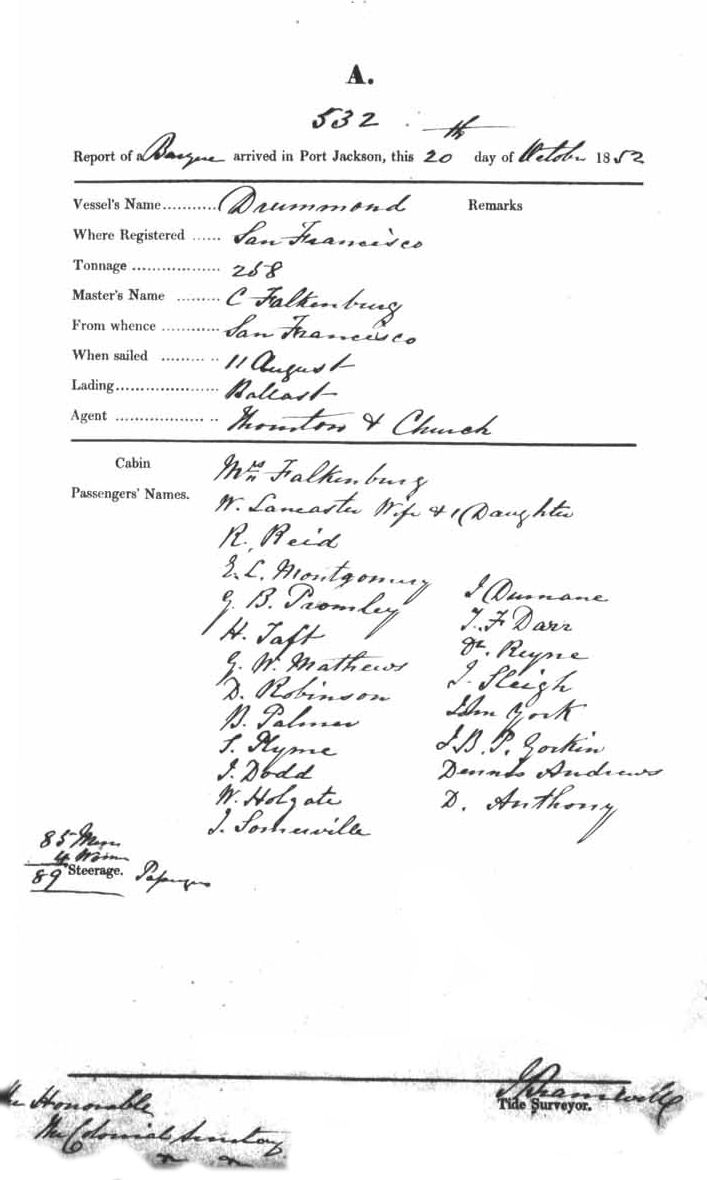 A.
532
Report of a Barque arrived in Port Jackson, this 20th day of October 1852
Vessel's Name........... Drummond Remarks
Where Registered ...... San Francisco
Tonnage .................. 268
Master's Name ......... C Falkenburg
From whence ............ San Francisco
When sailed ......... .. 11 August
Lading..................... Ballast
Agent .................. .. Thornton & Church
Cabin
Passengers' Names.
Mrs Falkenburg
W. Lancaster Wife & 1 Daughter
R. Reid
E. L. Montgomery
G. B. Bromley
H. Taft
G. W. Mathews
D. Robinson
B. Palmer
S. Kyme
J. Dodd
W. Holgate
J. Somerville
J Durnane
T. F Darr
Dr. Reyne
J. Sleigh
John York
J. B. P. Gorkin
Dennis Andrews
D. Anthony
85 Men
4 Women
89 Steerage. Passengers
Tide Surveyor.
The Honorable
The Colonial Secretary